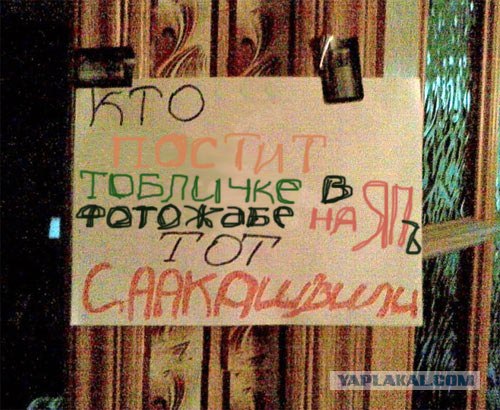 КТО
ПОСТИТ
ТОБЛИЧКЕ В
ФОТОЖАБЕ НА ЯПЪ
ТОТ
СААКАШВИЛИ
YAPLAKAL.COM